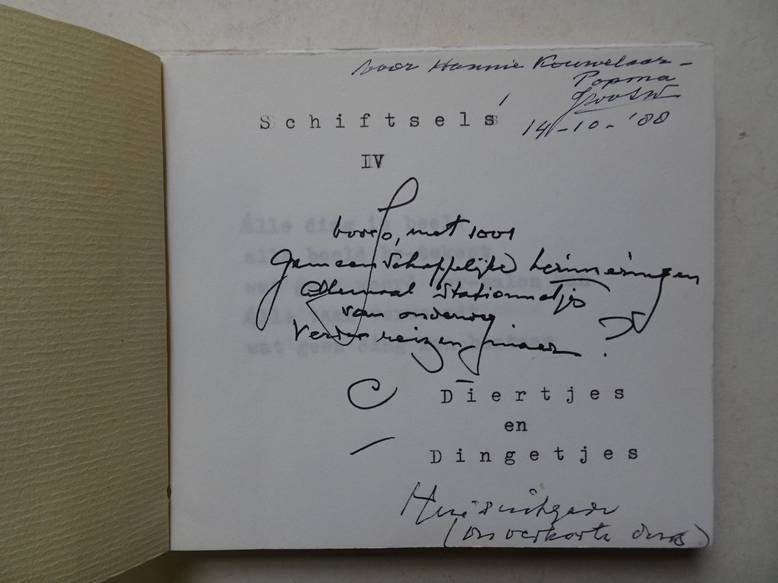 voor Hannie Kouwelaar-
Popma
14-10-'88
Schiftsels
IV
voor jo, met 1001
gemeenschappelijke herinneringen
allemaal stationnetjes
van onderweg
verder reizen, maar?
Diertjes
en
Dingetjes
Huisuitgave
(onverkorte